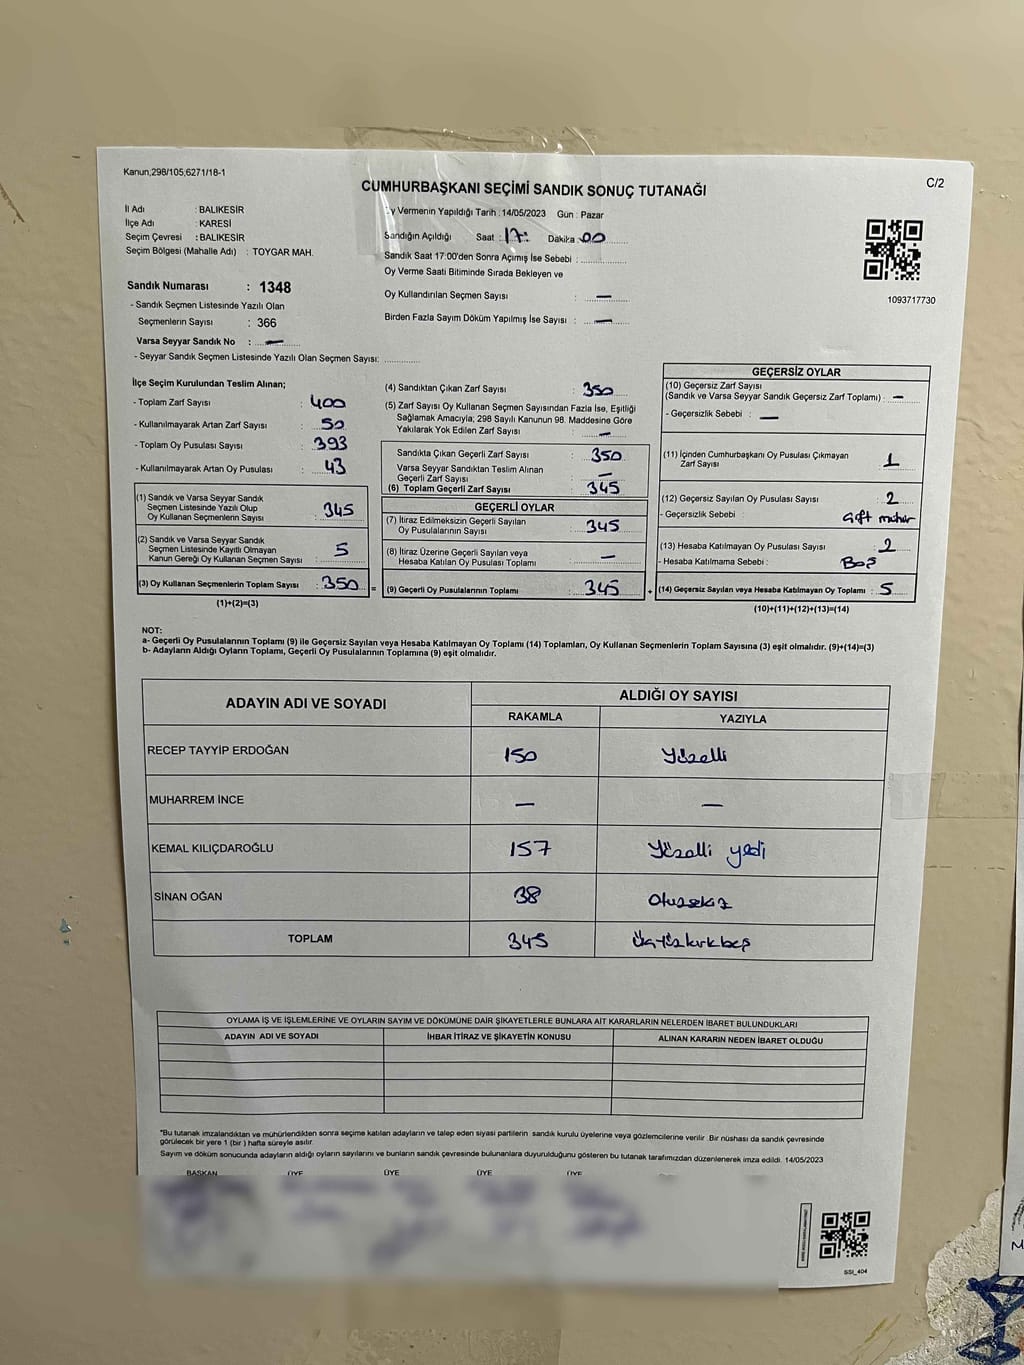 Kanun,298/105,6271/18-1
C/2
CUMHURBAŞKANI SEÇİMİ SANDIK SONUÇ TUTANAĞI
İl Adı : BALIKESİR
İlçe Adı : KARESİ
Seçim Çevresi : BALIKESİR
Seçim Bölgesi (Mahalle Adı) : TOYGAR MAH.
Sandık Numarası : 1348
- Sandık Seçmen Listesinde Yazılı Olan
Seçmenlerin Sayısı : 366
Varsa Seyyar Sandık No : —
- Seyyar Sandık Seçmen Listesinde Yazılı Olan Seçmen Sayısı: ............
Oy Vermenin Yapıldığı Tarih : 14/05/2023 Gün : Pazar
Sandığın Açıldığı Saat : 17: Dakika : 00
Sandık Saat 17:00'den Sonra Açımış İse Sebebi : ............
Oy Verme Saati Bitiminde Sırada Bekleyen ve
Oy Kullandırılan Seçmen Sayısı : —
Birden Fazla Sayım Döküm Yapılmış İse Sayısı : —
1093717730
İlçe Seçim Kurulundan Teslim Alınan;
- Toplam Zarf Sayısı : 400
- Kullanılmayarak Artan Zarf Sayısı : 50
- Toplam Oy Pusulası Sayısı : 393
- Kullanılmayarak Artan Oy Pusulası : 43
(1) Sandık ve Varsa Seyyar Sandık
Seçmen Listesinde Yazılı Olup
Oy Kullanan Seçmenlerin Sayısı : 345
(2) Sandık ve Varsa Seyyar Sandık
Seçmen Listesinde Kayıtlı Olmayan
Kanun Gereği Oy Kullanan Seçmen Sayısı : 5
(3) Oy Kullanan Seçmenlerin Toplam Sayısı : 350 =
(1)+(2)=(3)
(4) Sandıktan Çıkan Zarf Sayısı : 350
(5) Zarf Sayısı Oy Kullanan Seçmen Sayısından Fazla İse, Eşitliği
Sağlamak Amacıyla; 298 Sayılı Kanunun 98. Maddesine Göre
Yakılarak Yok Edilen Zarf Sayısı : —
Sandıkta Çıkan Geçerli Zarf Sayısı : 350
Varsa Seyyar Sandıktan Teslim Alınan
Geçerli Zarf Sayısı : —
(6) Toplam Geçerli Zarf Sayısı : 345
GEÇERLİ OYLAR
(7) İtiraz Edilmeksizin Geçerli Sayılan
Oy Pusulalarının Sayısı : 345
(8) İtiraz Üzerine Geçerli Sayılan veya
Hesaba Katılan Oy Pusulası Toplamı : —
(9) Geçerli Oy Pusulalarının Toplamı : 345 +
GEÇERSİZ OYLAR
(10) Geçersiz Zarf Sayısı
(Sandık ve Varsa Seyyar Sandık Geçersiz Zarf Toplamı) : —
- Geçersizlik Sebebi : —
(11) İçinden Cumhurbaşkanı Oy Pusulası Çıkmayan
Zarf Sayısı : 1
(12) Geçersiz Sayılan Oy Pusulası Sayısı : 2
- Geçersizlik Sebebi : Çift mühür
(13) Hesaba Katılmayan Oy Pusulası Sayısı : 2
- Hesaba Katılmama Sebebi : Boş
(14) Geçersiz Sayılan veya Hesaba Katılmayan Oy Toplamı : 5
(10)+(11)+(12)+(13)=(14)
NOT:
a- Geçerli Oy Pusulalarının Toplamı (9) ile Geçersiz Sayılan veya Hesaba Katılmayan Oy Toplamı (14) Toplamları, Oy Kullanan Seçmenlerin Toplam Sayısına (3) eşit olmalıdır. (9)+(14)=(3)
b- Adayların Aldığı Oyların Toplamı, Geçerli Oy Pusulalarının Toplamına (9) eşit olmalıdır.
ADAYIN ADI VE SOYADI
ALDIĞI OY SAYISI
RAKAMLA YAZIYLA
RECEP TAYYİP ERDOĞAN 150 Yüzelli
MUHARREM İNCE — —
KEMAL KILIÇDAROĞLU 157 Yüzelli yedi
SİNAN OĞAN 38 Otuzsekiz
TOPLAM 345 Üçyüzkırkbeş
OYLAMA İŞ VE İŞLEMLERİNE VE OYLARIN SAYIM VE DÖKÜMÜNE DAİR ŞİKAYETLERLE BUNLARA AİT KARARLARIN NELERDEN İBARET BULUNDUKLARI
ADAYIN ADI VE SOYADI İHBAR İTİRAZ VE ŞİKAYETİN KONUSU ALINAN KARARIN NEDEN İBARET OLDUĞU
*Bu tutanak imzalandıktan ve mühürlendikten sonra seçime katılan adayların ve talep eden siyasi partilerin sandık kurulu üyelerine veya gözlemcilerine verilir. Bir nüshası da sandık çevresinde
görülecek bir yere 1 (bir) hafta süreyle asılır.
Sayım ve döküm sonucunda adayların aldığı oyların sayılarını ve bunların sandık çevresinde bulunanlara duyurulduğunu gösteren bu tutanak tarafımızdan düzenlenerek imza edildi. 14/05/2023
BAŞKAN ÜYE ÜYE ÜYE ÜYE
SSI_404